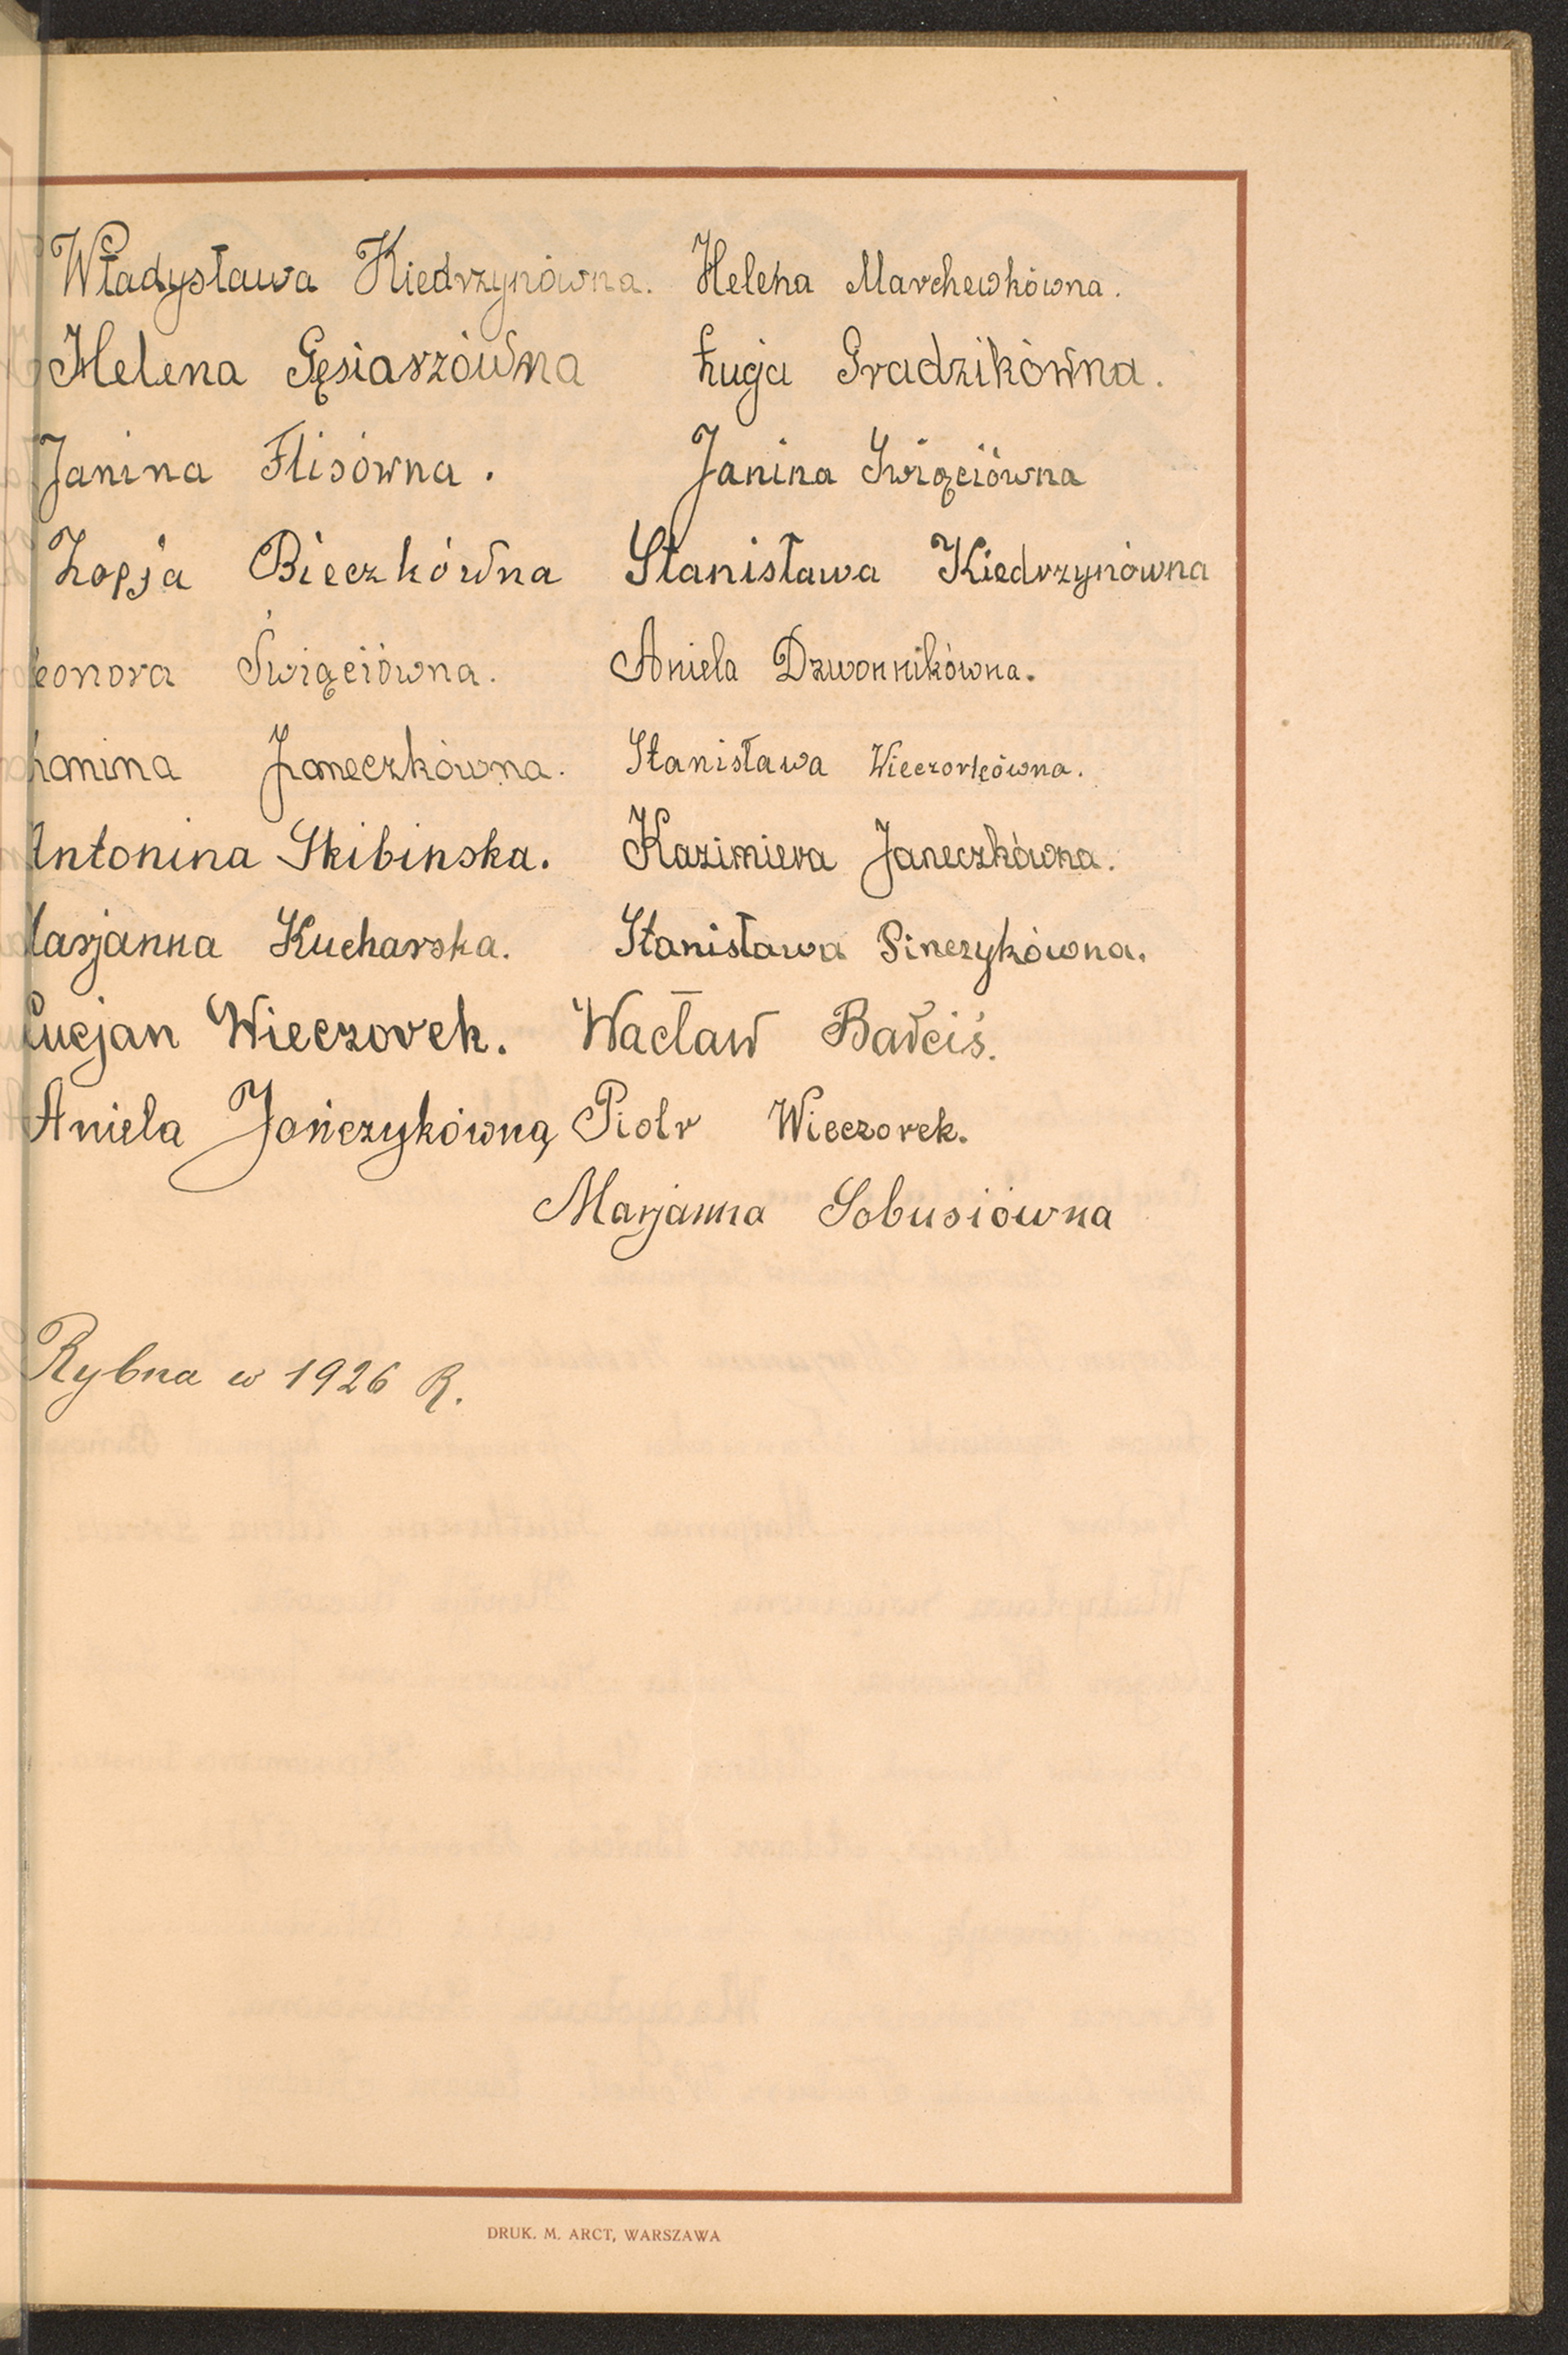 Władysława Kiedrzynówna. Helena Marchewkówna.
Helena Gęsiaszówna Łucja Gradzikówna.
Janina Flisówna. Janina Święciówna
Zofja Bieczkówna Stanisława Kiedrzynówna
eonora Święciówna. Aniela Dzwonnikówna.
Janeczkówna. Stanisława Wieczorkówna.
Antonina Skibinska. Kazimiera Janeczkówna.
arjanna Kucharska. Stanisława Pinczykówna.
Lucjan Wieczorek. Wacław Bałciś.
Aniela Jańczykówna Piotr Wieczorek.
Marjanna Sobusiówna
Rybna w 1926 R.
DRUK. M. ARCT, WARSZAWA